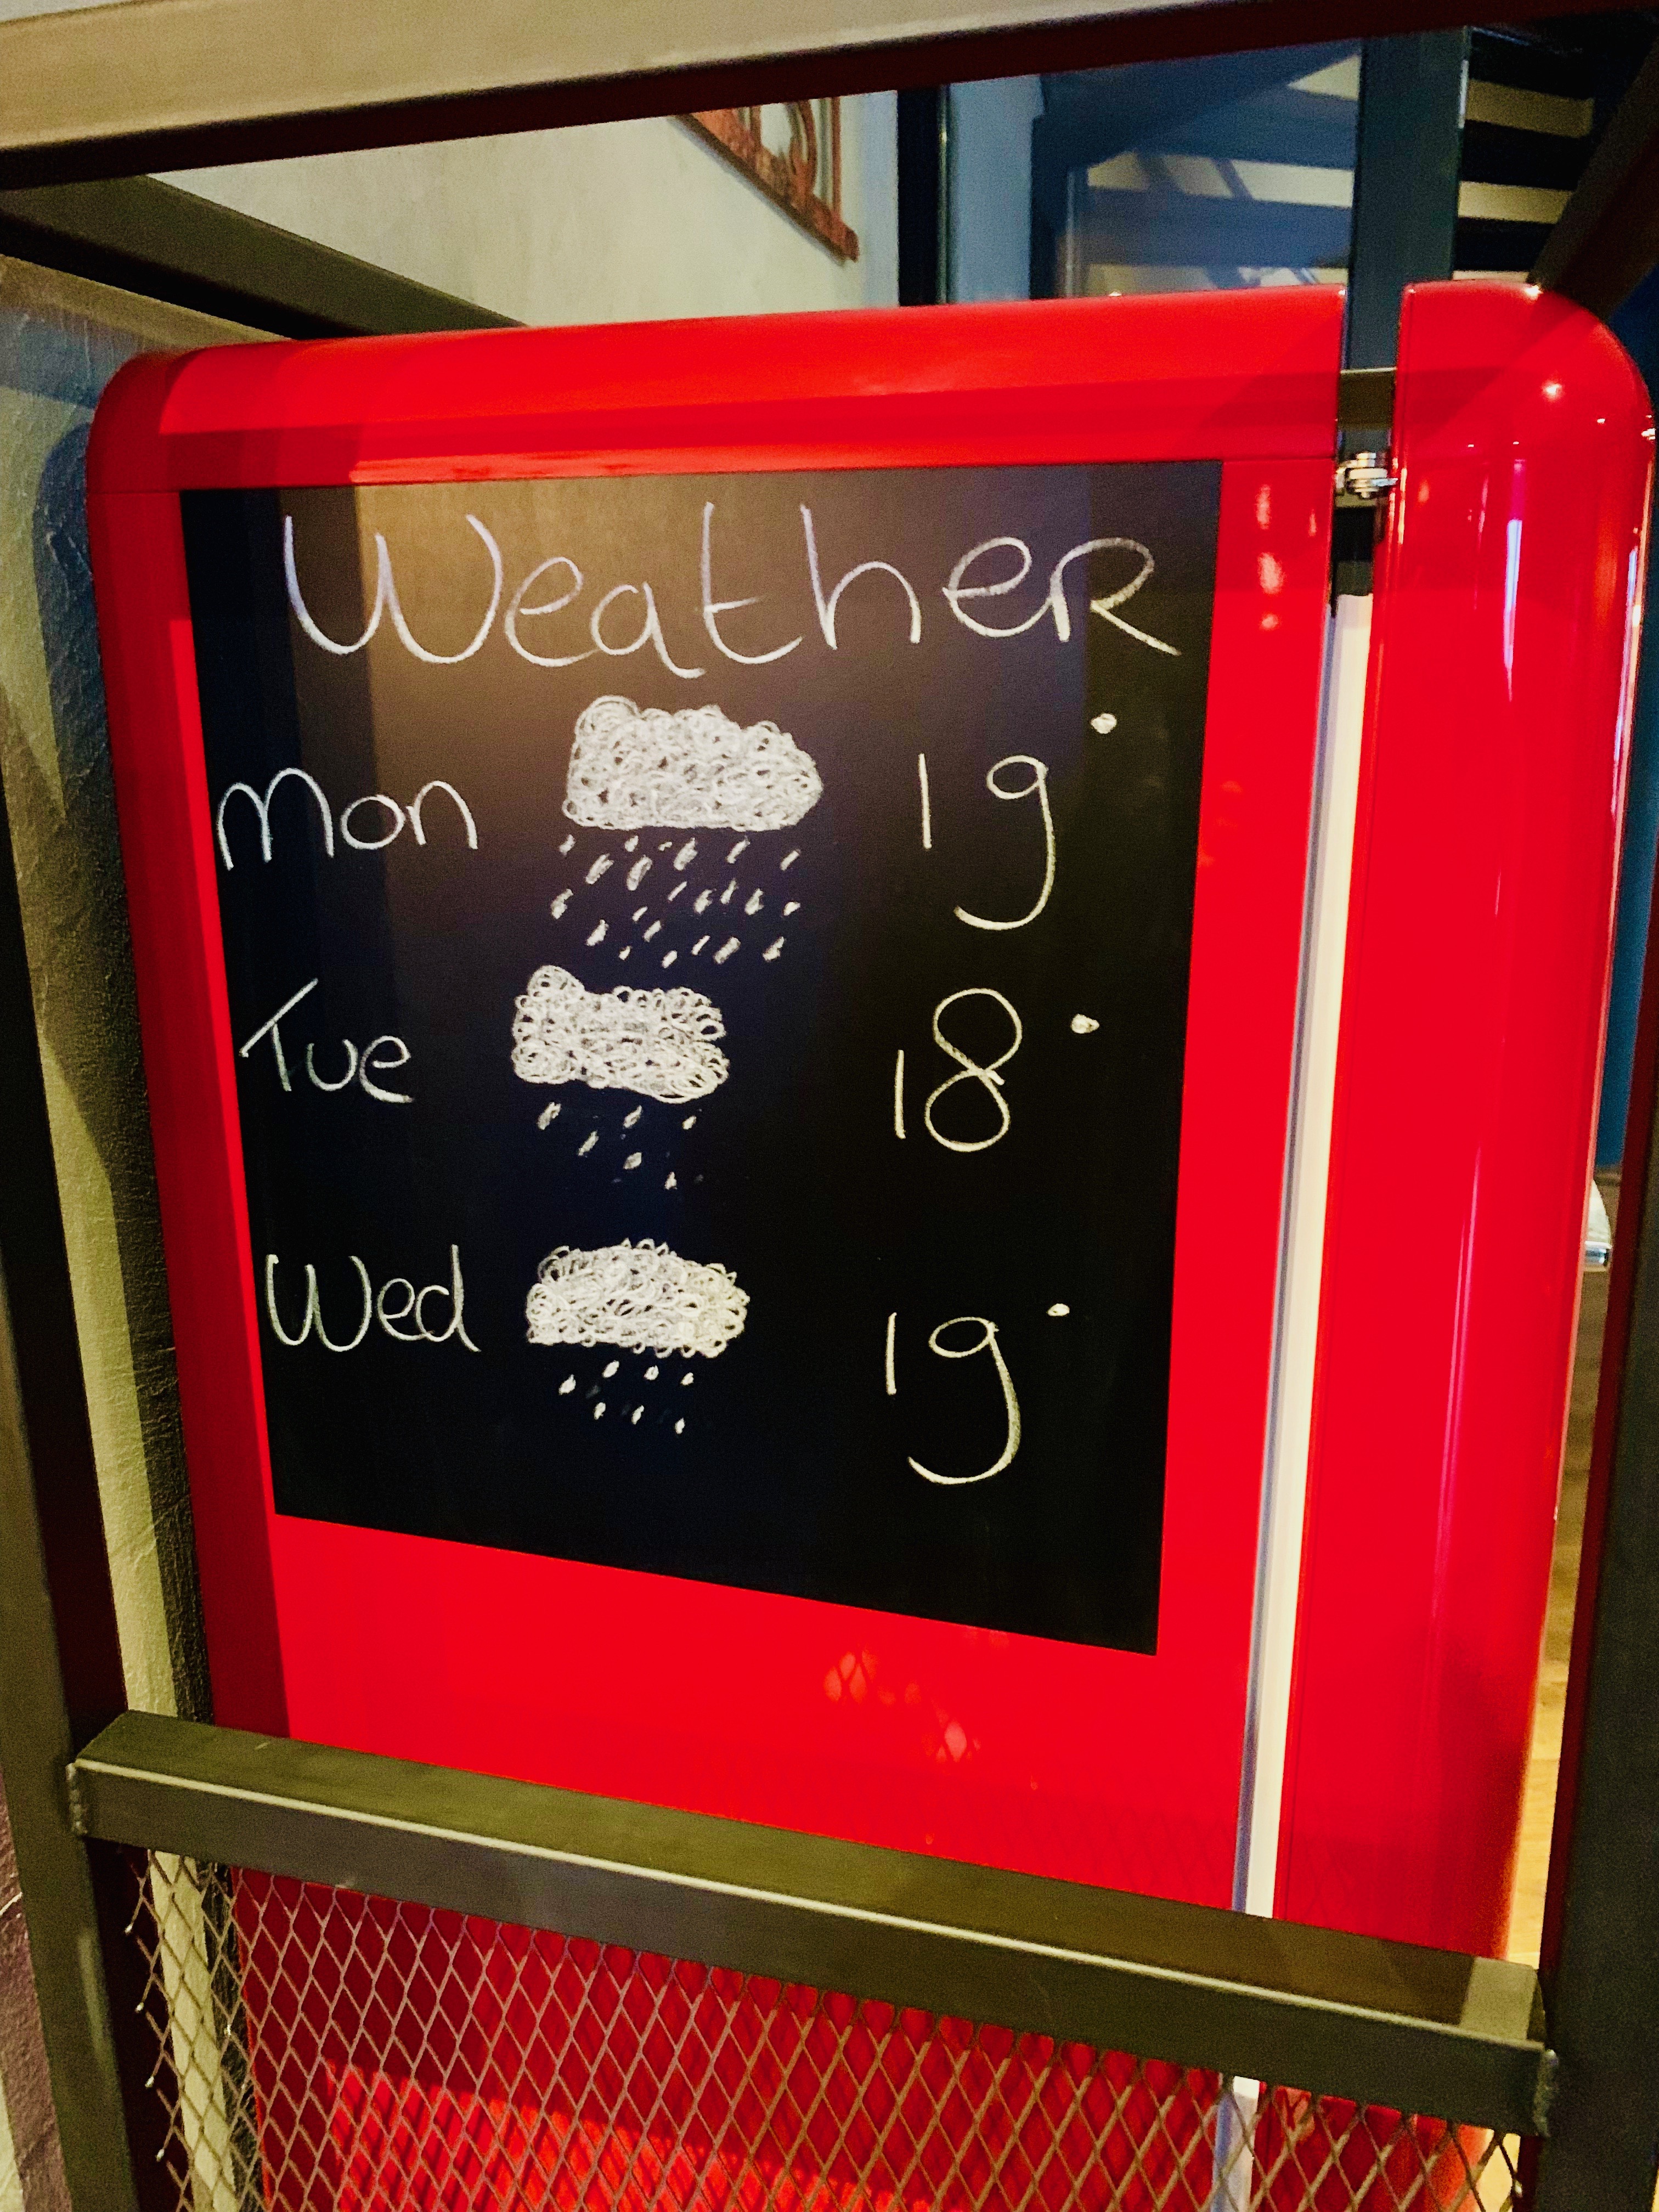 Weather
Mon 19°
Tue 18°
Wed 19°